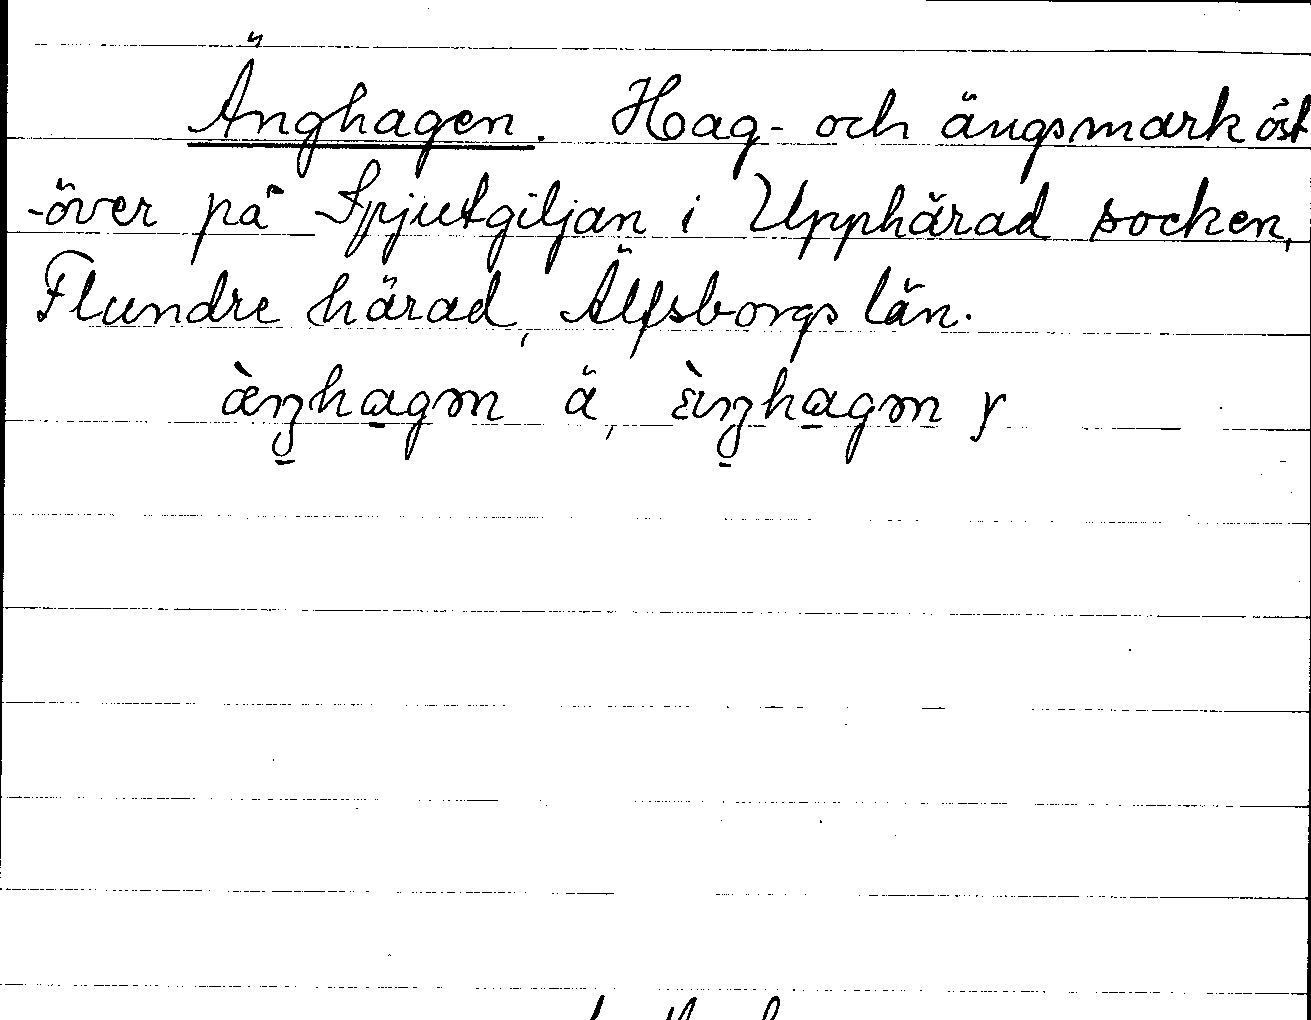 Änghagen. Hag- och ängsmark öst
-över på Spjutgiljan i Upphärad socken,
Flundre härad, Älfsborgs län.
ä, y